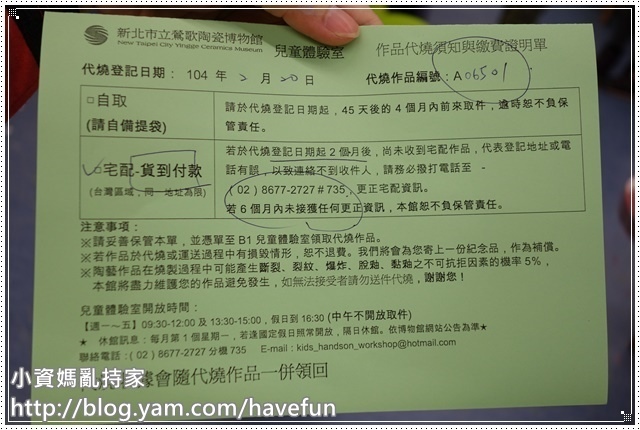 新北市立鶯歌陶瓷博物館
New Taipei City Yingge Ceramics Museum
兒童體驗室
作品代燒須知與繳費證明單
代燒登記日期： 104 年 2 月 20 日
代燒作品編號：A06501
□自取
(請自備提袋)
請於代燒登記日期起，45 天後的 4 個月內前來取件，逾時恕不負保
管責任。
□宅配-貨到付款
(台灣區域，同一地址為限)
若於代燒登記日期起 2 個月後，尚未收到宅配作品，代表登記地址或電
話有誤，以致連絡不到收件人，請務必撥打電話至 -
(02) 8677-2727＃735，更正宅配資訊。
若 6 個月內未接獲任何更正資訊，本館恕不負保管責任。
注意事項：
※請妥善保管本單，並憑單至 B1 兒童體驗室領取代燒作品。
※若作品於代燒或運送過程中有損毀情形，恕不退費。我們將會為您寄上一份紀念品，作為補償。
※陶藝作品在燒製過程中可能產生斷裂、裂紋、爆炸、脫釉、黏釉之不可抗拒因素的機率 5%，
本館將盡力維護您的作品避免發生，如無法接受者請勿送件代燒，謝謝您！
兒童體驗室開放時間：
【週一～五】09:30-12:00 及 13:30-15:00，假日到 16:30 (中午不開放取件)
★ 休館訊息：每月第 1 個星期一，若逢國定假日照常開放，隔日休館。依博物館網站公告為準★
聯絡電話：(02) 8677-2727 分機 735 E-mail：kids_handson_workshop@hotmail.com
會隨代燒作品一併領回
小資媽亂持家
http://blog.yam.com/havefun